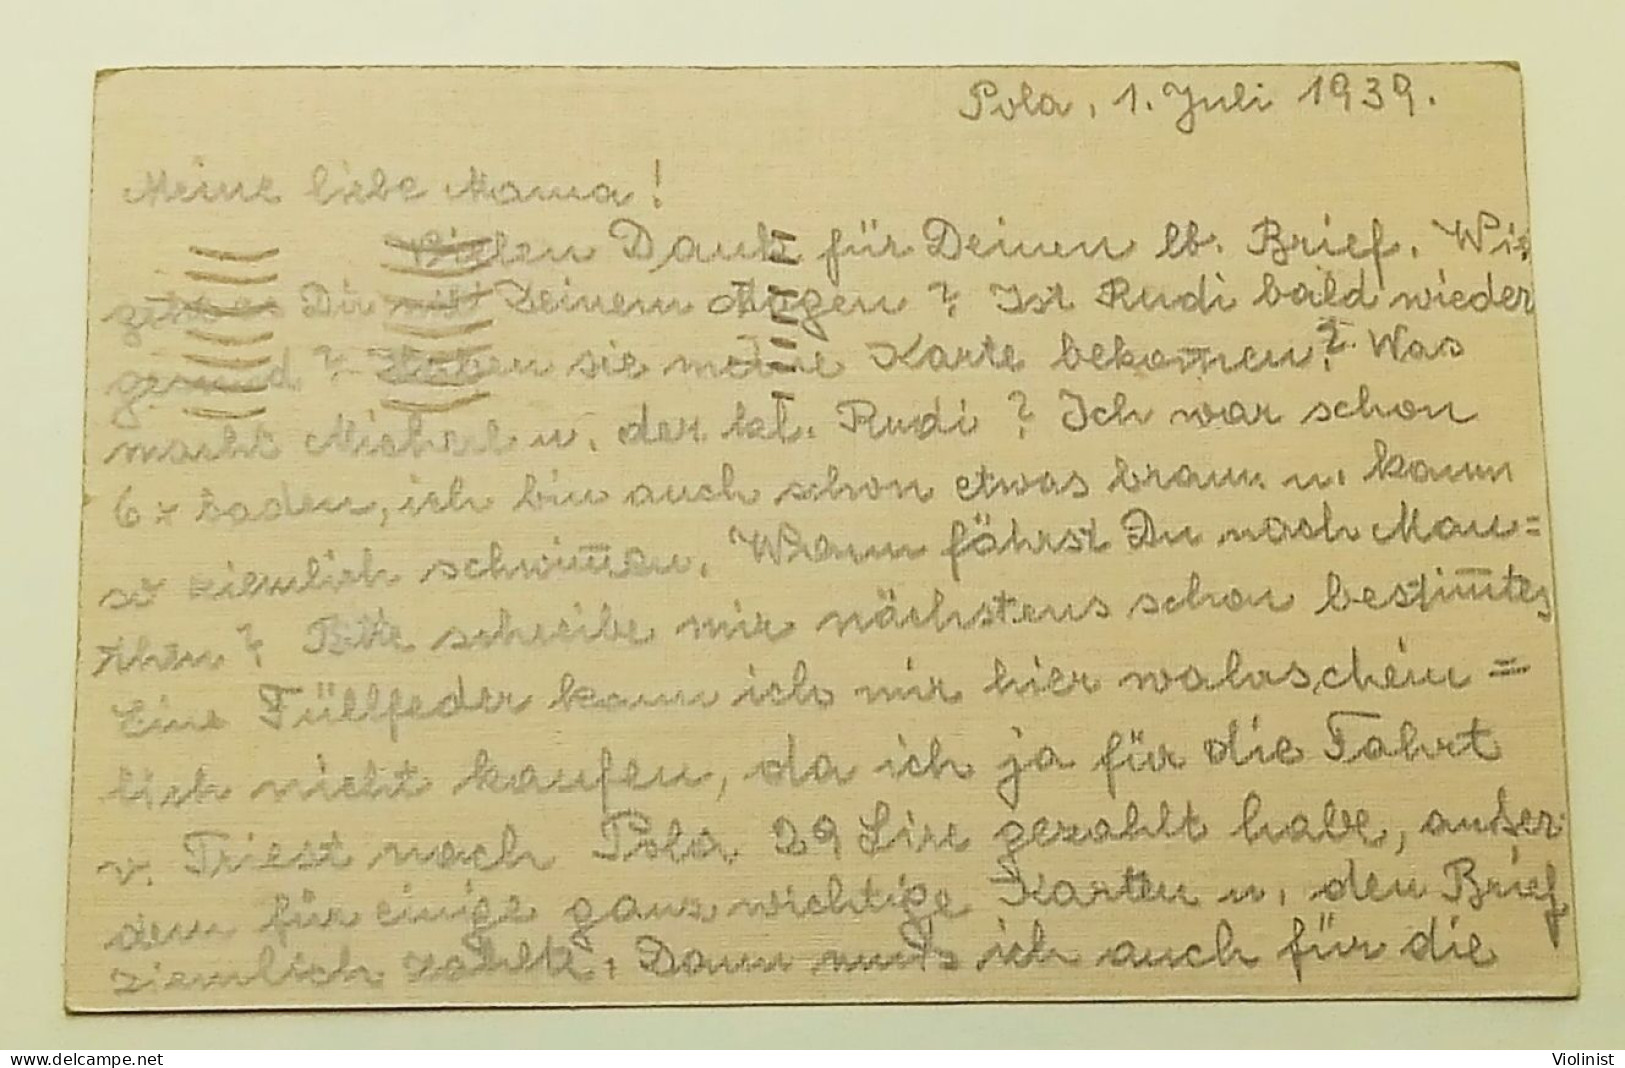 Pola, 1. Juli 1939.
Meine liebe Mama!
Vielen Dank für Deinen lb. Brief. Wie
geht es Dir mit Deinem Magen? Ist Rudi bald wieder
gesund? Haben sie meine Karte bekom̅en? Was
macht Micherl u. der kl. Rudi? Ich war schon
6x baden, ich bin auch schon etwas braun u. kann
so ziemlich schwim̅en. Wann fährst Du nach Mau=
then? Bitte schreibe mir nächstens schon bestim̅tes
Eine Füllfeder kann ich mir hier wahrschein=
lich nicht kaufen, da ich ja für die Fahrt
v. Triest nach Pola 29 Lire gezahlt habe, außer
dem für einige ganz wichtige Karten u. den Brief
ziemlich zahlte. Dann muß ich auch für die
www.delcampe.net
Violinist